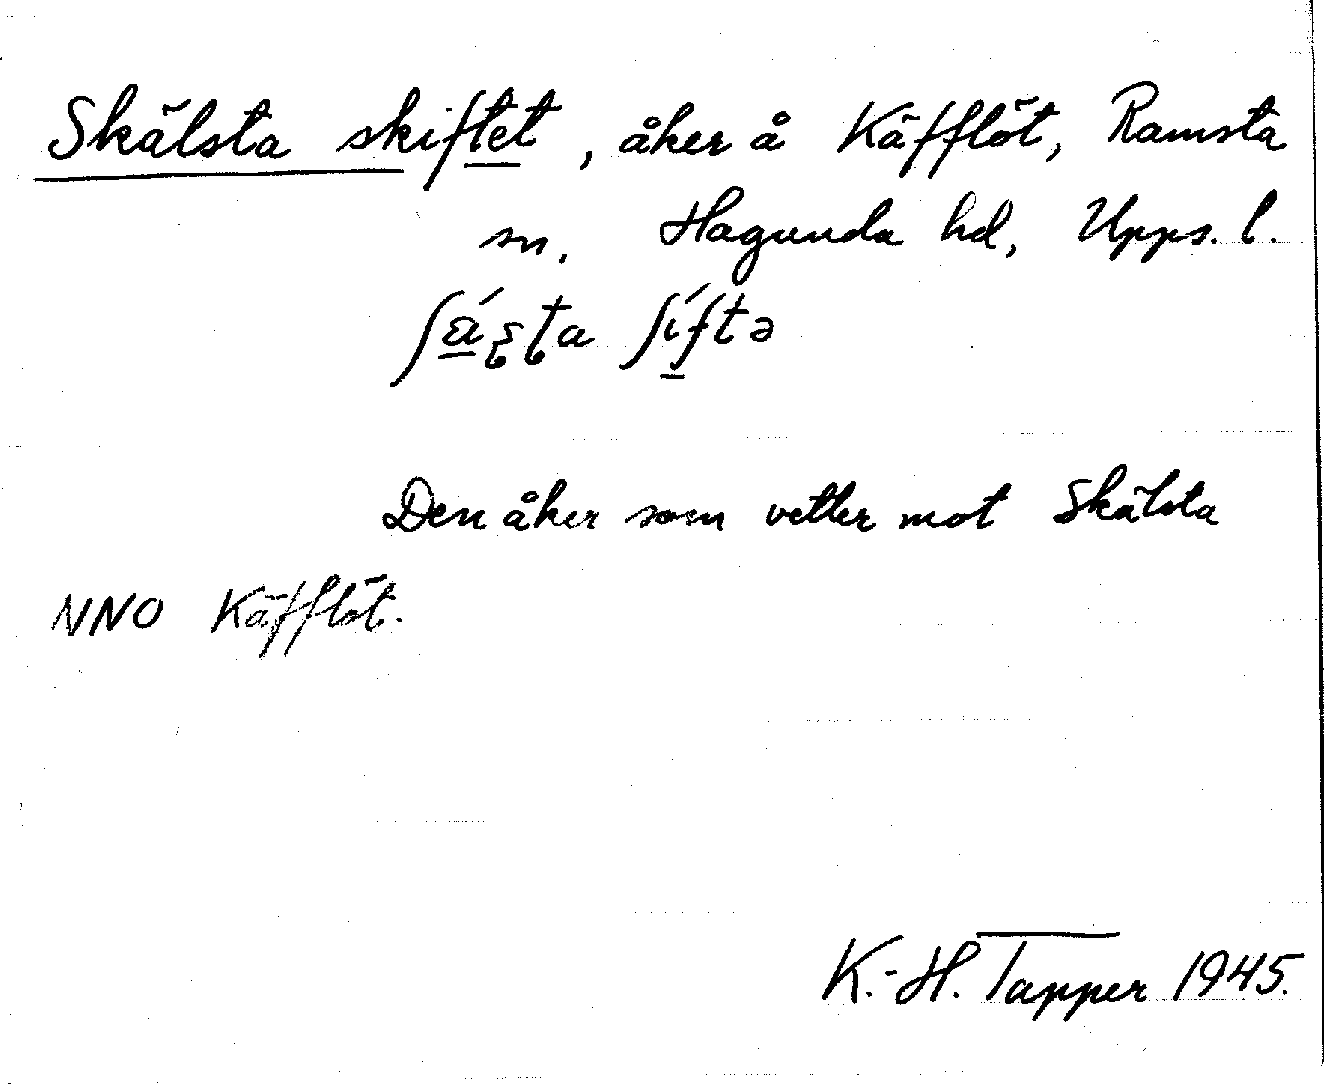 Skälsta skiftet, åker å Käfflöt, Ramsta
sn. Hagunda hd, Upps. l.
ʃä́ʂʈa ʃíftə
Den åker som vetter mot Skälsta
NNO Käfflöt.
K.-H. Tapper 1945.